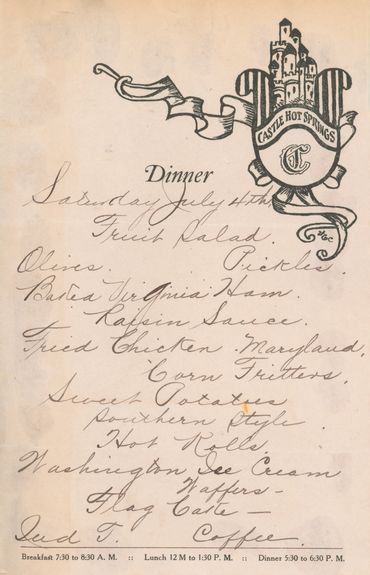 CASTLE HOT SPRINGS
Dinner
Saturday July 4th
Fruit Salad.
Olives. Pickles.
Baked Virginia Ham.
Raisin Sauce.
Fried Chicken. Maryland.
Corn Fritters.
Sweet Potatoes
Southern Style.
Hot Rolls.
Washington Ice Cream
Waffers-
Flag Cake-
Iced T. Coffee.
Breakfast 7:30 to 8:30 A. M. :: Lunch 12 M to 1:30 P. M. :: Dinner 5:30 to 6:30 P. M.